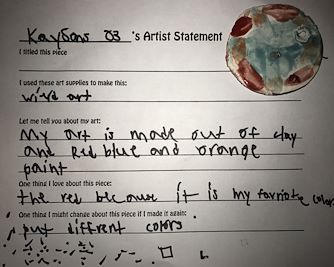 Kaysons 03 's Artist Statement
I titled this piece
I used these art supplies to make this:
wird art
Let me tell you about my art:
My art is made out of clay
and Red blue and orange
paint
One thing I love about this piece:
the red because it is my favriote color
One thing I might change about this piece if I made it again:
put diffrent colors